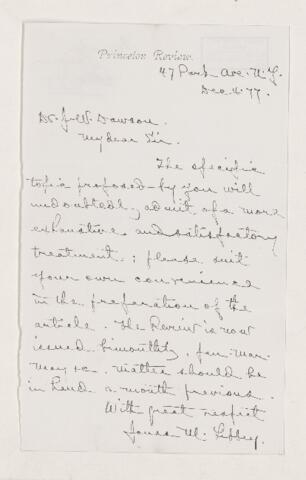 Princeton Review.
47 Park Ave. N.Y.
Dec. 4. 77.
Dr. J. W. Dawson.
My dear Sir.
The specific
topic proposed by you will
undoubtedly admit of a more
exhaustive and satisfactory
treatment. ; please suit
your own convenience
in the preparation of the
article. The Review is now
issued bimonthly, Jan. Mar.
May &c. matter should be
in hand a month previous.
With great respect
Jonas M. Libbey.